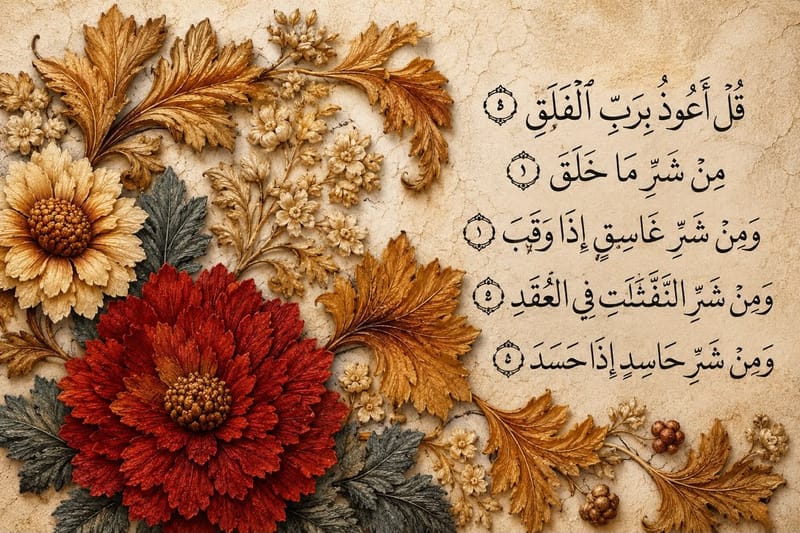 قُلْ أَعُوذُ بِرَبِّ ٱلْفَلَقِ ٤
مِنْ شَرِّ مَا خَلَقَ ١
وَمِنْ شَرِّ غَاسِقٍ إِذَا وَقَبَ ١
وَمِنْ شَرِّ النَّفَّثَٰلَتِ فِي الْعُقَدِ ٥
وَمِنْ شَرِّ حَاسِدٍ إِذَا حَسَدَ ٥